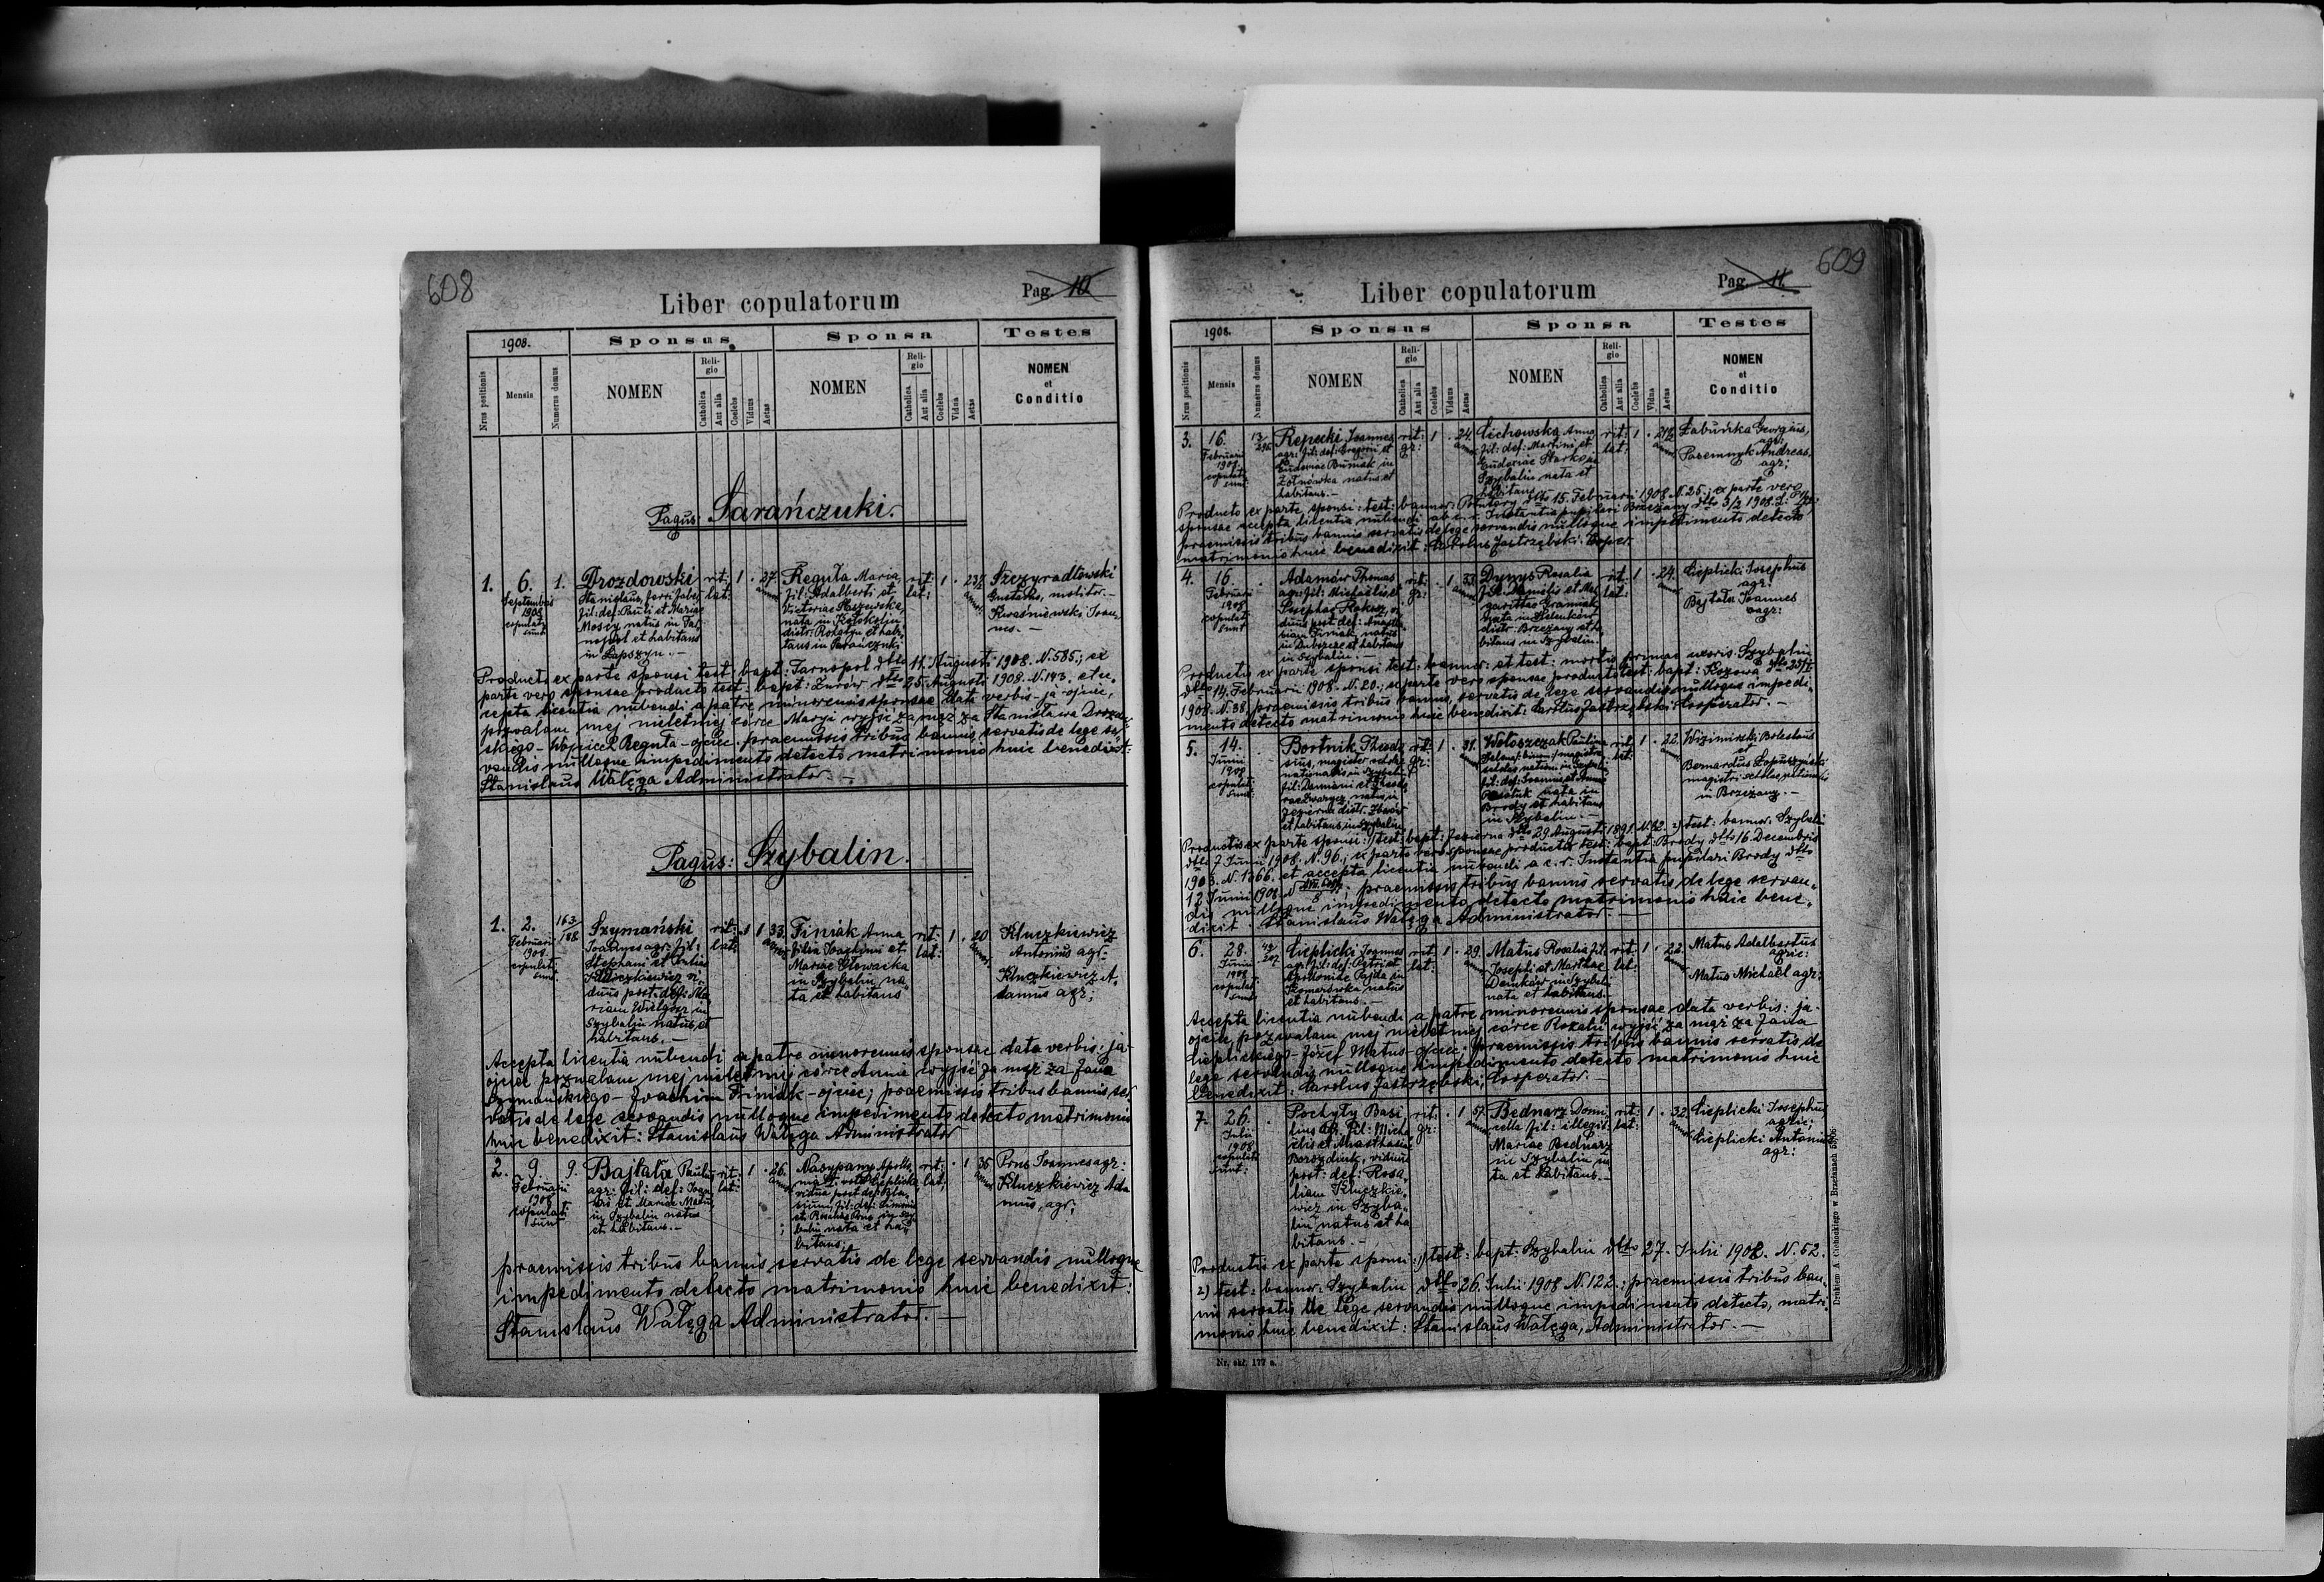 608
Pag. 10
Liber copulatorum
1908.
Sponsus
Sponsa
Testes
Nrus positionis
Mensis
Numerus domus
NOMEN
Religio
Catholica
Aut alia
Coelebs
Viduus
Aetas
NOMEN
Religio
Catholica
Aut alia
Coelebs
Vidua
Aetas
NOMEN
et
Conditio
Pagus: Sarańczuki.
1. 6. Septembris 1908 copulati sunt 1.
Drozdowski
Stanislaus, ferri faber
fil: def: Pauli et Mariae
natus in Tar
nopol et habitans
in Łapszyn. —
rit: lat: 1 . 27 annor
Reguła Maria,
fil: Adalberti et
Victoriae
nata in
distr: Rohatyn et habi
tans in Sarańczuki
rit: lat: 1 . 23½ annor
Szczyradłowski
Gustavus, molitor. —
Kwaśniewski Joan
nes. —
Producto ex parte sponsi test: bapt: Tarnopol dtto 11. Augusti 1908. N. 585.; ex
parte vero sponsae producto test: bapt: Żurów dtto 25. Augusti 1908. N. 143. et ac
cepta licentia nubendi a patre minorennis sponsae data verbis - ja ojciec,
pozwalam mej nieletniej córce Maryi wyjść za mąż za Stanisława Drozdow
skiego - Wojciech Reguła - ojciec. praemissis tribus bannis, servatis de lege ser
vandis nulloque impedimento detecto matrimonio huic benedixit:
Stanislaus Wałęga Administrator. —
Pagus: Szybalin.
1. 2. Februarii 1908 copulati sunt 163/188
Szymański
Joannes agr: fil:
Stephani et
Kluczkiewicz vi
duus post: def: Ma
riam in
Szybalin natus et
habitans. —
rit: lat: . 1 33 annor
Finiak Anna
filia Joachimi et
Mariae Głowacka
in Szybalin na
ta et habitans
rit: lat: 1 . 20 annor
Kluczkiewicz
Antonius agr:
Kluczkiewicz A
damus agr;
Accepta licentia nubendi a patre minorennis sponsae data verbis: ja
ojciec pozwalam mej nieletniej córce Annie wyjść za mąż za Jana
Szymańskiego - Joachim Finiak - ojciec; praemissis tribus bannis ser
vatis de lege servandis nulloque impedimento detecto matrimonio
huic benedixit: Stanislaus Wałęga Administrator
2. 9. Februarii 1908 copulati sunt 9.
Bajtała Paulus
agr: fil: def: Joan
nis et Mariae Matus,
in Szybalin natus
et habitans. —
rit: lat: 1 . 26 annor
Nasypany Apollo
nia Cieplicka
vidua post def:
fil: def: Simonis
et Rosaliae Prus in Szy
balin nata et ha
bitans;
rit: lat; . 1 35 annor
Prus Joannes agr:
Kluczkiewicz Ada
mus, agr;
praemissis tribus bannis servatis de lege servandis nulloque
impedimento detecto matrimonio huic benedixit:
Stanislaus Wałęga Administrator. —
609
Pag. 11
Liber copulatorum
1908.
Sponsus
Sponsa
Testes
Nrus positionis
Mensis
Numerus domus
NOMEN
Religio
Catholica
Aut alia
Coelebs
Viduus
Aetas
NOMEN
Religio
Catholica
Aut alia
Coelebs
Vidua
Aetas
NOMEN
et
Conditio
3. 16. Februarii 1908 copulati sunt
Repecki Joannes
agr: fil: def: Gregorii et
Eudoxiae in
Żołnówka natus et
habitans. —
rit: gr: 1 . 24 annor
Cichowska Anna
fil: def: Martini et
Eudoxiae
Szybalin nata et
habitans
rit: lat: 1 . 21½ annor
Łabuńka Georgius,
agr:
Paremczyk Andreas
agr;
Producto ex parte sponsi: test: bannor: Potutory dtto 15. Februarii 1908 N. 25.; ex parte vero
sponsae accepta licentia nubendi ab c. r. Instantia pupilari Brzeżany dtto 3/2 1908.
praemissis tribus bannis servatis de lege servandis nulloque impedimento detecto
matrimonio huic benedixit: Carolus Jastrzębski Cooper.
4. 16. Februarii 1908 copulati sunt
Adamów Thomas
agr: fil: Michaelis et
Josephae vi
duus post def: Anasta
siam Finiak natus
in et habitans
in Szybalin. —
rit: gr: . 1 33 annor
Dymys Rosalia
fil: et Mar
garitha
nata in
distr: Brzeżany et ha
bitans in Szybalin.
rit: lat: 1 . 24 annor
Cieplicki Josephus
agr:
Bajtała Joannes
agr:
Productis ex parte sponsi test: bannor: et test: mortis primae uxoris Szybalin
dtto 14. Februarii 1908. N. 20.; ex parte vero sponsae producto test: bapt: Kozowa dtto 25/I
1908. N. 38. praemissis tribus bannis, servatis de lege servandis nulloque impedi
mento detecto matrimonio huic benedixit: Carolus Jastrzębski Cooperator. —
5. 14. Junii 1908 copulati sunt:
Bortnik Theodo
sius, magister scholae
in Szybalin
fil: Damiani et
natus in
Jezierna distr. Zborów
et habitans in Szybalin
rit: gr: 1 . 31 annor
Wołoszczak Paulina
magistra
scholae in Szybalin
fil: def: Joannis et Annae
nata in
Brody et habitans
in Szybalin. —
rit: lat: 1 . 22 annor
Wiziminski Boleslaus
et
Bernardus
magistri scholae
in Brzeżany. —
Productis ex parte sponsi: 1) test: bapt: Jezierna dtto 29. Augusti 1891. N. 42. 2) test: bannor. Szybalin
dtto 7. Junii 1908. N. 96.; ex parte vero sponsae productis test: bapt: Brody dtto 16 Decembris
1903. N. 1766. et accepta licentia nubendi a c. r. Instantia pupilari Brody dtto
12 Junii 1908. praemissis tribus bannis servatis de lege servan
dis nulloque impedimento detecto matrimonio huic bene
dixit. Stanislaus Wałęga Administrator. —
6. 28. Junii 1908 copulati sunt 49/207
Cieplicki Joannes
agr. fil: def: Petri et
Apoloniae Pajda in
Komorówka natus
et habitans. —
rit: lat: 1 . 29. annor
Matus Rosalia fil:
Josephi et Marthae
Demków in Szybalin
nata et habitans.
rit: lat: 1 . 22. annor
Matus Adalbertus
agric:
Matus Michael agr:
Accepta licentia nubendi a patre minorennis sponsae data verbis: ja
ojciec pozwalam mej nieletniej córce Rozalii wyjść za mąż za Jana
Cieplickiego - Józef Matus - ojciec. praemissis tribus bannis servatis de
lege servandis nulloque impedimento detecto matrimonio huic
benedixit: Carolus Jastrzębski, Cooperator. —
7. 26. Julii 1908 copulati sunt:
Pochyły Basi
lius agr. fil: Micha
elis et Anasthasiae
viduus
post: def: Rosa
liam Kluczkie
wicz in Szyba
lin natus et ha
bitans. —
rit: gr: . 1 57 annor
Bednarz Domi
cella fil: illegit:
Mariae Bednarz
in Szybalin na
ta et habitans. —
rit: lat: 1 . 32 annor
Cieplicki Josephus
agric:
Cieplicki Antonius
agr:
Productis ex parte sponsi: 1) test: bapt: Szybalin dtto 27. Julii 1908. N. 52.
2) test: bannor. Szybalin dtto 26. Julii 1908 N. 122.; praemissis tribus ban
nis servatis de lege servandis nulloque impedimento detecto, matri
monio huic benedixit: Stanislaus Wałęga, Administrator. —
Nr. okł. 177 a.
Drukiem A. Cichockiego w Brzeżanach